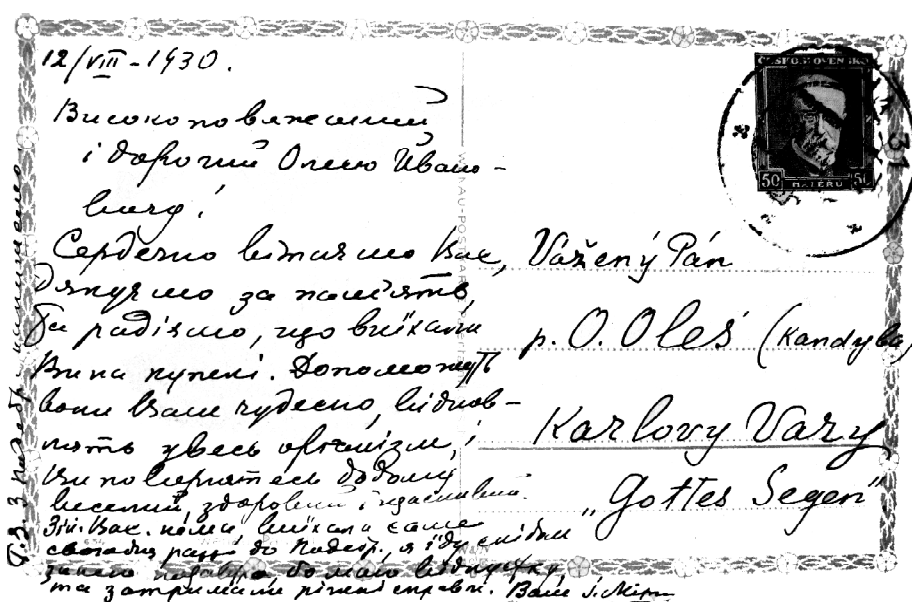 12/VIII - 1930.
Високоповажаний
і дорогий Олекс Івано-
вичу!
Сердечно вітаємо Вас,
Дякуємо за пам'ять,
та радіємо, що виїхали
Ви на купелі. Допоможуть
вони Вам чудесно, віднов-
лять увесь організм, і
Ви повернетесь додому
веселий, здоровий і щасливий.
Зін. Вас. нема, виїхала саме
сьогодня до Подебр., а я іду слідом
за нею
та затримали різні справи. Ваш
Т.З. З Подебр.
ČESKOSLOVENSKO
50 HALÉŘŮ 50
31
Vážený Pán
p. O. Oleś (Kandyba)
Karlovy Vary
„Gottes Segen"